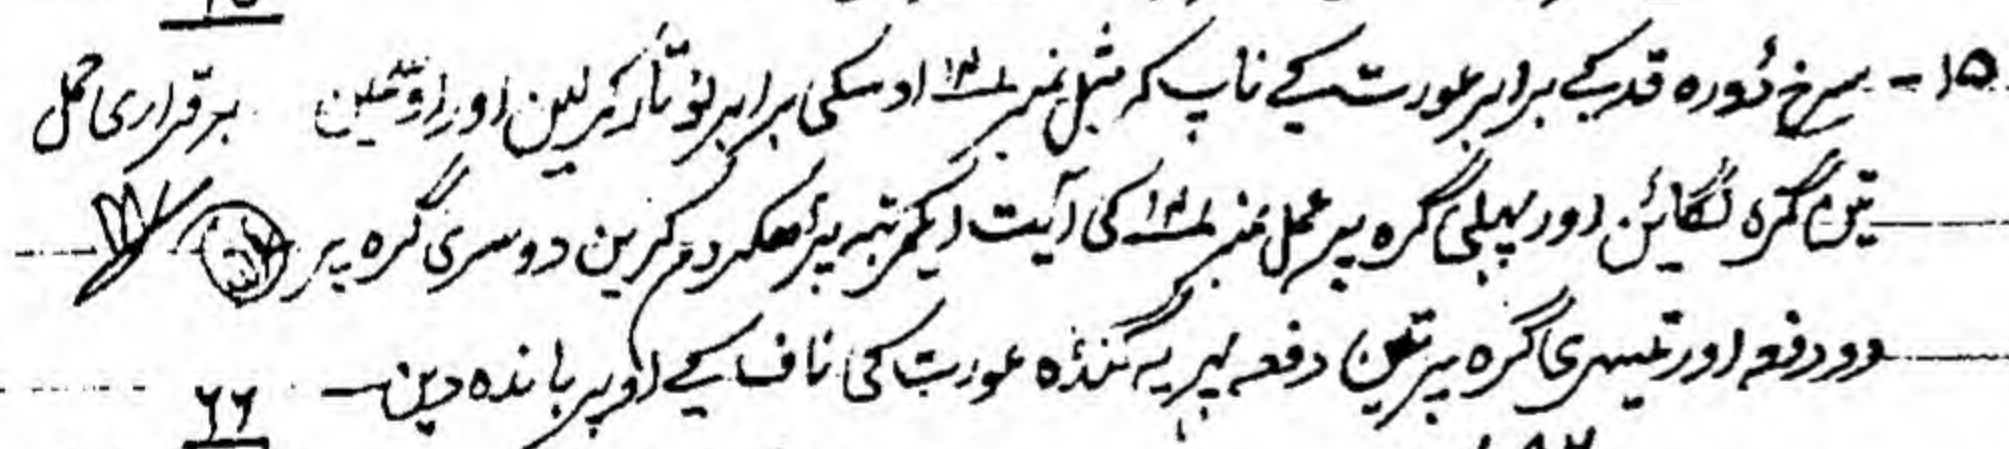 ۱۵- سرخ ڈورہ قد کے برابر عورت کے ناپ کر مثل نمبر ۱۴ اوسکی برابر نو تار کر لین اور اوسمین برقراری حمل
تین گرہ لگائین اور پہلی گرہ پر عمل نمبر ۱۴ کی آیت ایکمرتبہ پڑھکر دم کرین دوسری گرہ پر
دو دفعہ اور تیسری گرہ پر تین دفعہ پھر یہ گنڈہ عورت کی ناف کے اوپر باندہ دین۔
۶۶